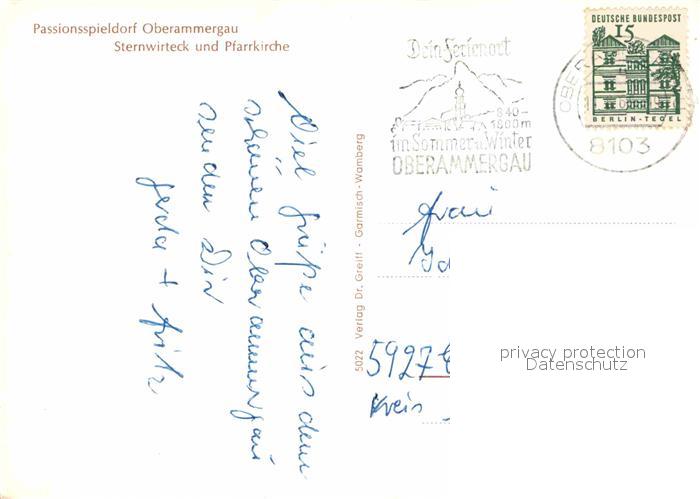 Passionsspieldorf Oberammergau
Sternwirteck und Pfarrkirche
Viel Grüße aus dem
schönen Oberammergau
senden Dir
Gerda + Fritz
5022 Verlag Dr. Greiff - Garmisch-Wamberg
Dein Ferienort
840-
1800m
im Sommer u. Winter
OBERAMMERGAU
DEUTSCHE BUNDESPOST
15
BERLIN-TEGEL
8103
Frau
5927
Kreis
privacy protection
Datenschutz